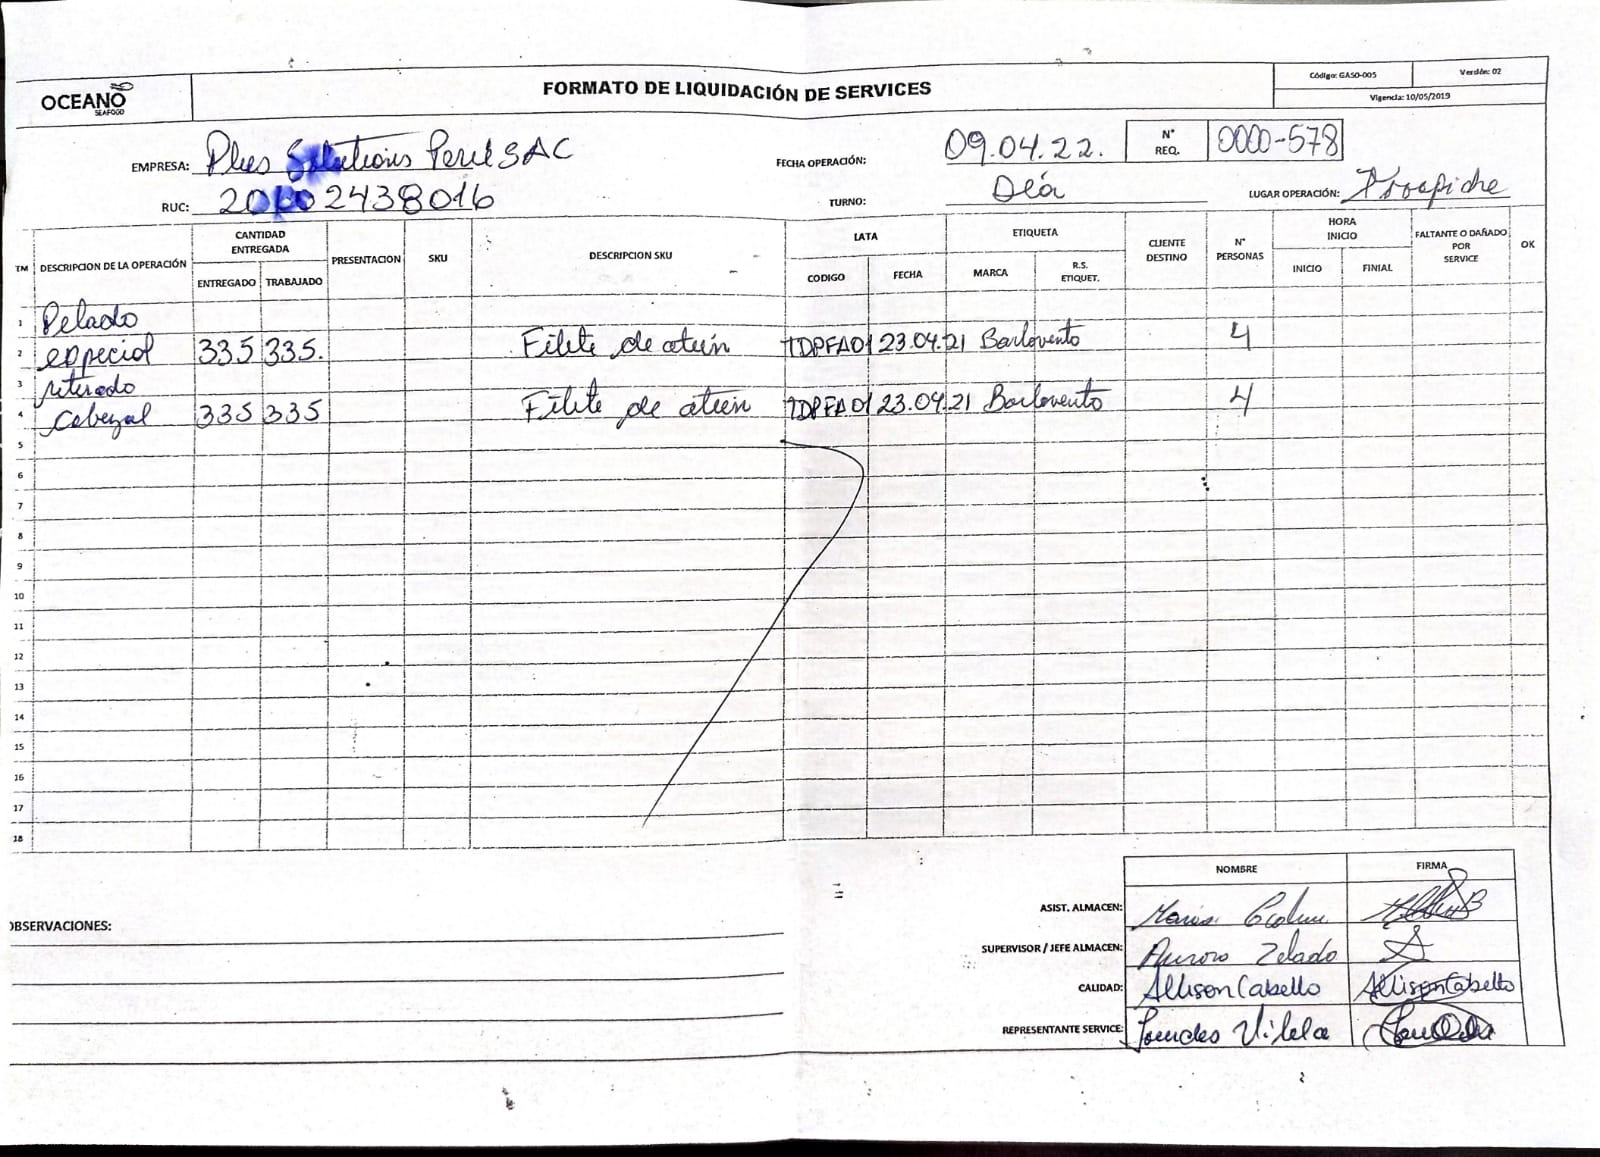 OCEANO
SEAFOOD
FORMATO DE LIQUIDACIÓN DE SERVICES
Código: GASO-005
Versión: 02
Vigencia: 10/05/2019
EMPRESA: Plus Solutions Perú SAC
FECHA OPERACIÓN: 09.04.22.
N° REQ. 0000-578
RUC: 20602438016
TURNO: Día
LUGAR OPERACIÓN: Trapiche
TM DESCRIPCION DE LA OPERACIÓN CANTIDAD ENTREGADA ENTREGADO TRABAJADO PRESENTACION SKU DESCRIPCION SKU LATA CODIGO FECHA ETIQUETA MARCA R.S. ETIQUET. CLIENTE DESTINO N° PERSONAS HORA INICIO INICIO FINIAL FALTANTE O DAÑADO POR SERVICE OK
1 Pelado
2 especial 335 335. Filete de atún TDPFA01 23.04.21 Barlovento 4
3 reterado
4 Cabezal 335 335 Filete de atún TDPFA01 23.04.21 Barlovento 4
5
6
7
8
9
10
11
12
13
14
15
16
17
18
NOMBRE FIRMA
OBSERVACIONES:
ASIST. ALMACEN: Maria
SUPERVISOR / JEFE ALMACEN: Aurora Zelada
CALIDAD: Allison Cabello Allison Cabello
REPRESENTANTE SERVICE: Lourdes Vilela